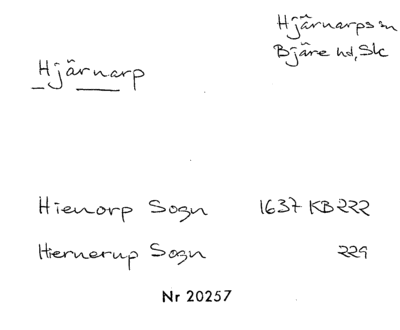 Hjärnarps sn
Bjäre hd, Sk
Hjärnarp
Hienorp Sogn 1637 KB 222
Hiernerup Sogn 229
Nr 20257